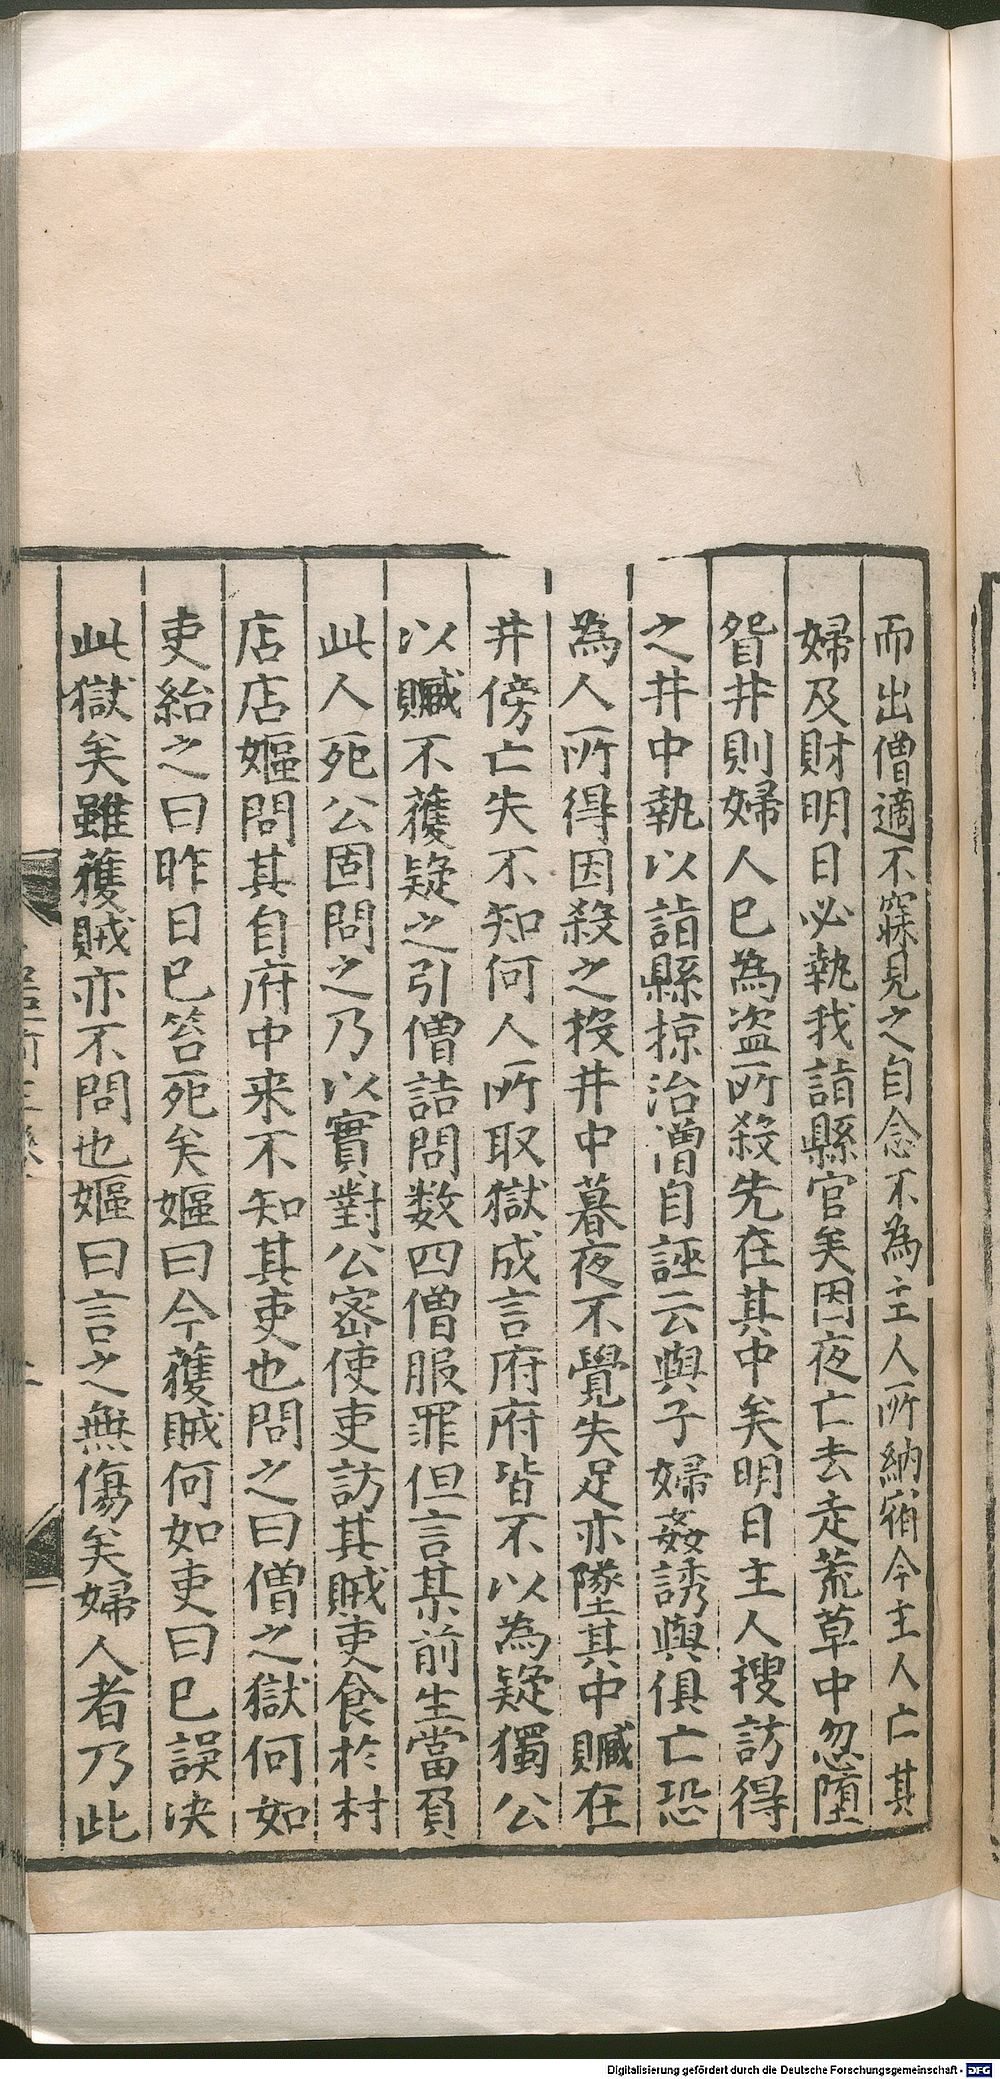 而出僧適不寐見之自念不為主人所納宿今主人亡其
婦及財明日必執我詣縣官矣因夜亡去走荒草中忽墮
眢井則婦人已為盗所殺先在其中矣明日主人搜訪得
之井中執以詣縣掠治僧自誣云與子婦姦誘與俱亡恐
為人所得因殺之投井中暮夜不覺失足亦墜其中贓在
井傍亡失不知何人所取獄成言府府皆不以為疑獨公
以贓不獲疑之引僧詰問数四僧服罪但言某前生當負
此人死公固問之乃以實對公宻使吏訪其賊吏食於村
店店嫗問其自府中来不知其吏也問之曰僧之獄何如
吏紿之曰昨日已笞死矣嫗曰今獲賊何如吏曰已誤决
此獄矣雖獲賊亦不問也嫗曰言之無傷矣婦人者乃此
Digitalisierung gefördert durch die Deutsche Forschungsgemeinschaft - DFG